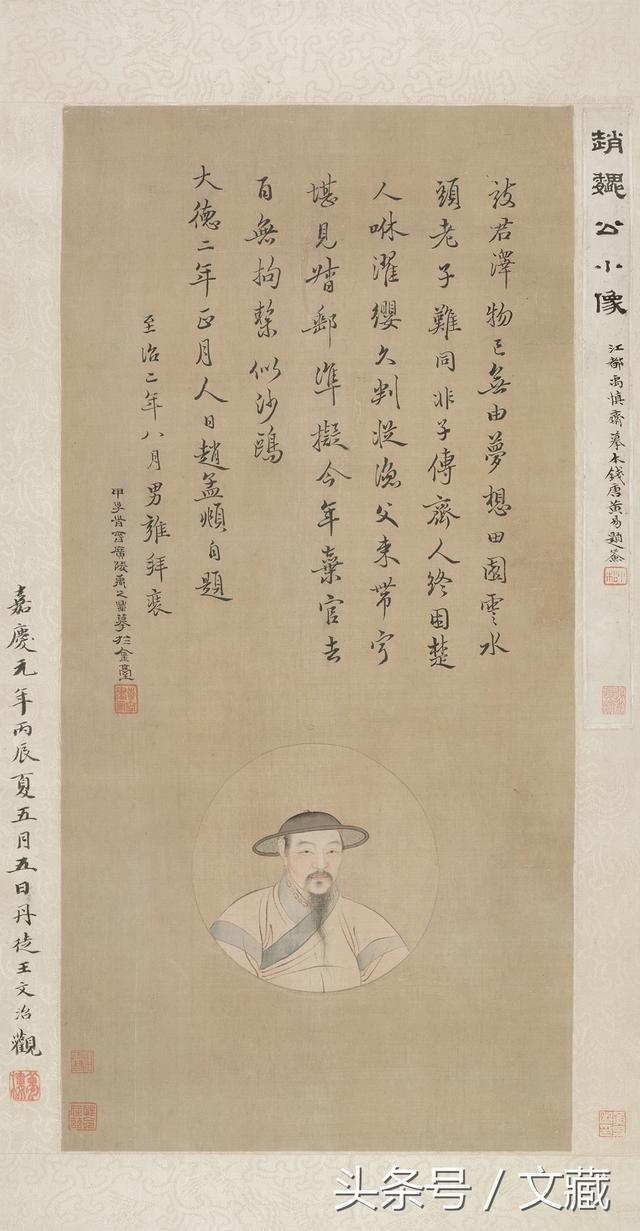 趙魏公小像
江都禹慎齋摹本錢唐黃易題簽
致君澤物已無由夢想田園雲水
頭老子難同非子傳齊人終困楚
人咻濯纓久判從漁父束帶寧
堪見督郵準擬今年棄官去
百無拘繫似沙鷗
大德二年正月人日趙孟頫自題
至治二年八月男雍拜
甲子廣陵禹之鼎摹於金臺
嘉慶元年丙辰夏五月五日丹徒王文治觀
头条号 / 文藏